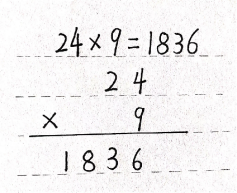 24×9=1836
24
× 9
1836